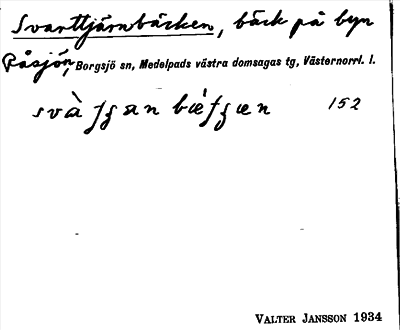 Svarttjärnbäcken, bäck på byn
Råsjön, Borgsjö sn, Medelpads västra domsagas tg, Västernorrl. l.
152
VALTER JANSSON 1934